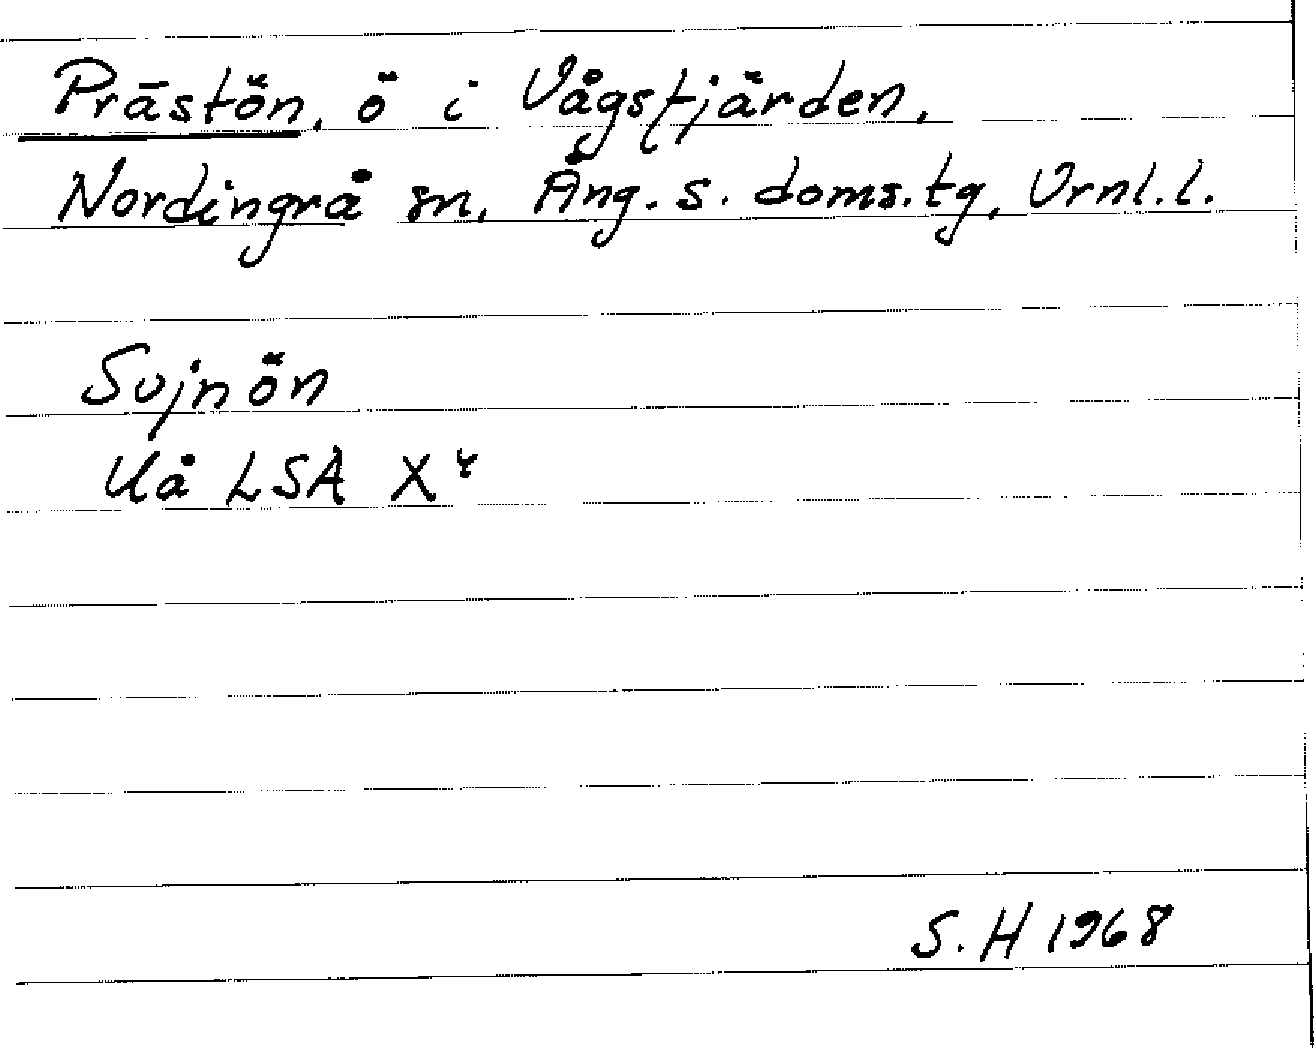 Prästön, ö i Vågsfjärden,
Nordingrå sn, Ång. s. doms.tg, Vrnl.l.
Svjnön
Kå LSA X
S. H 1968